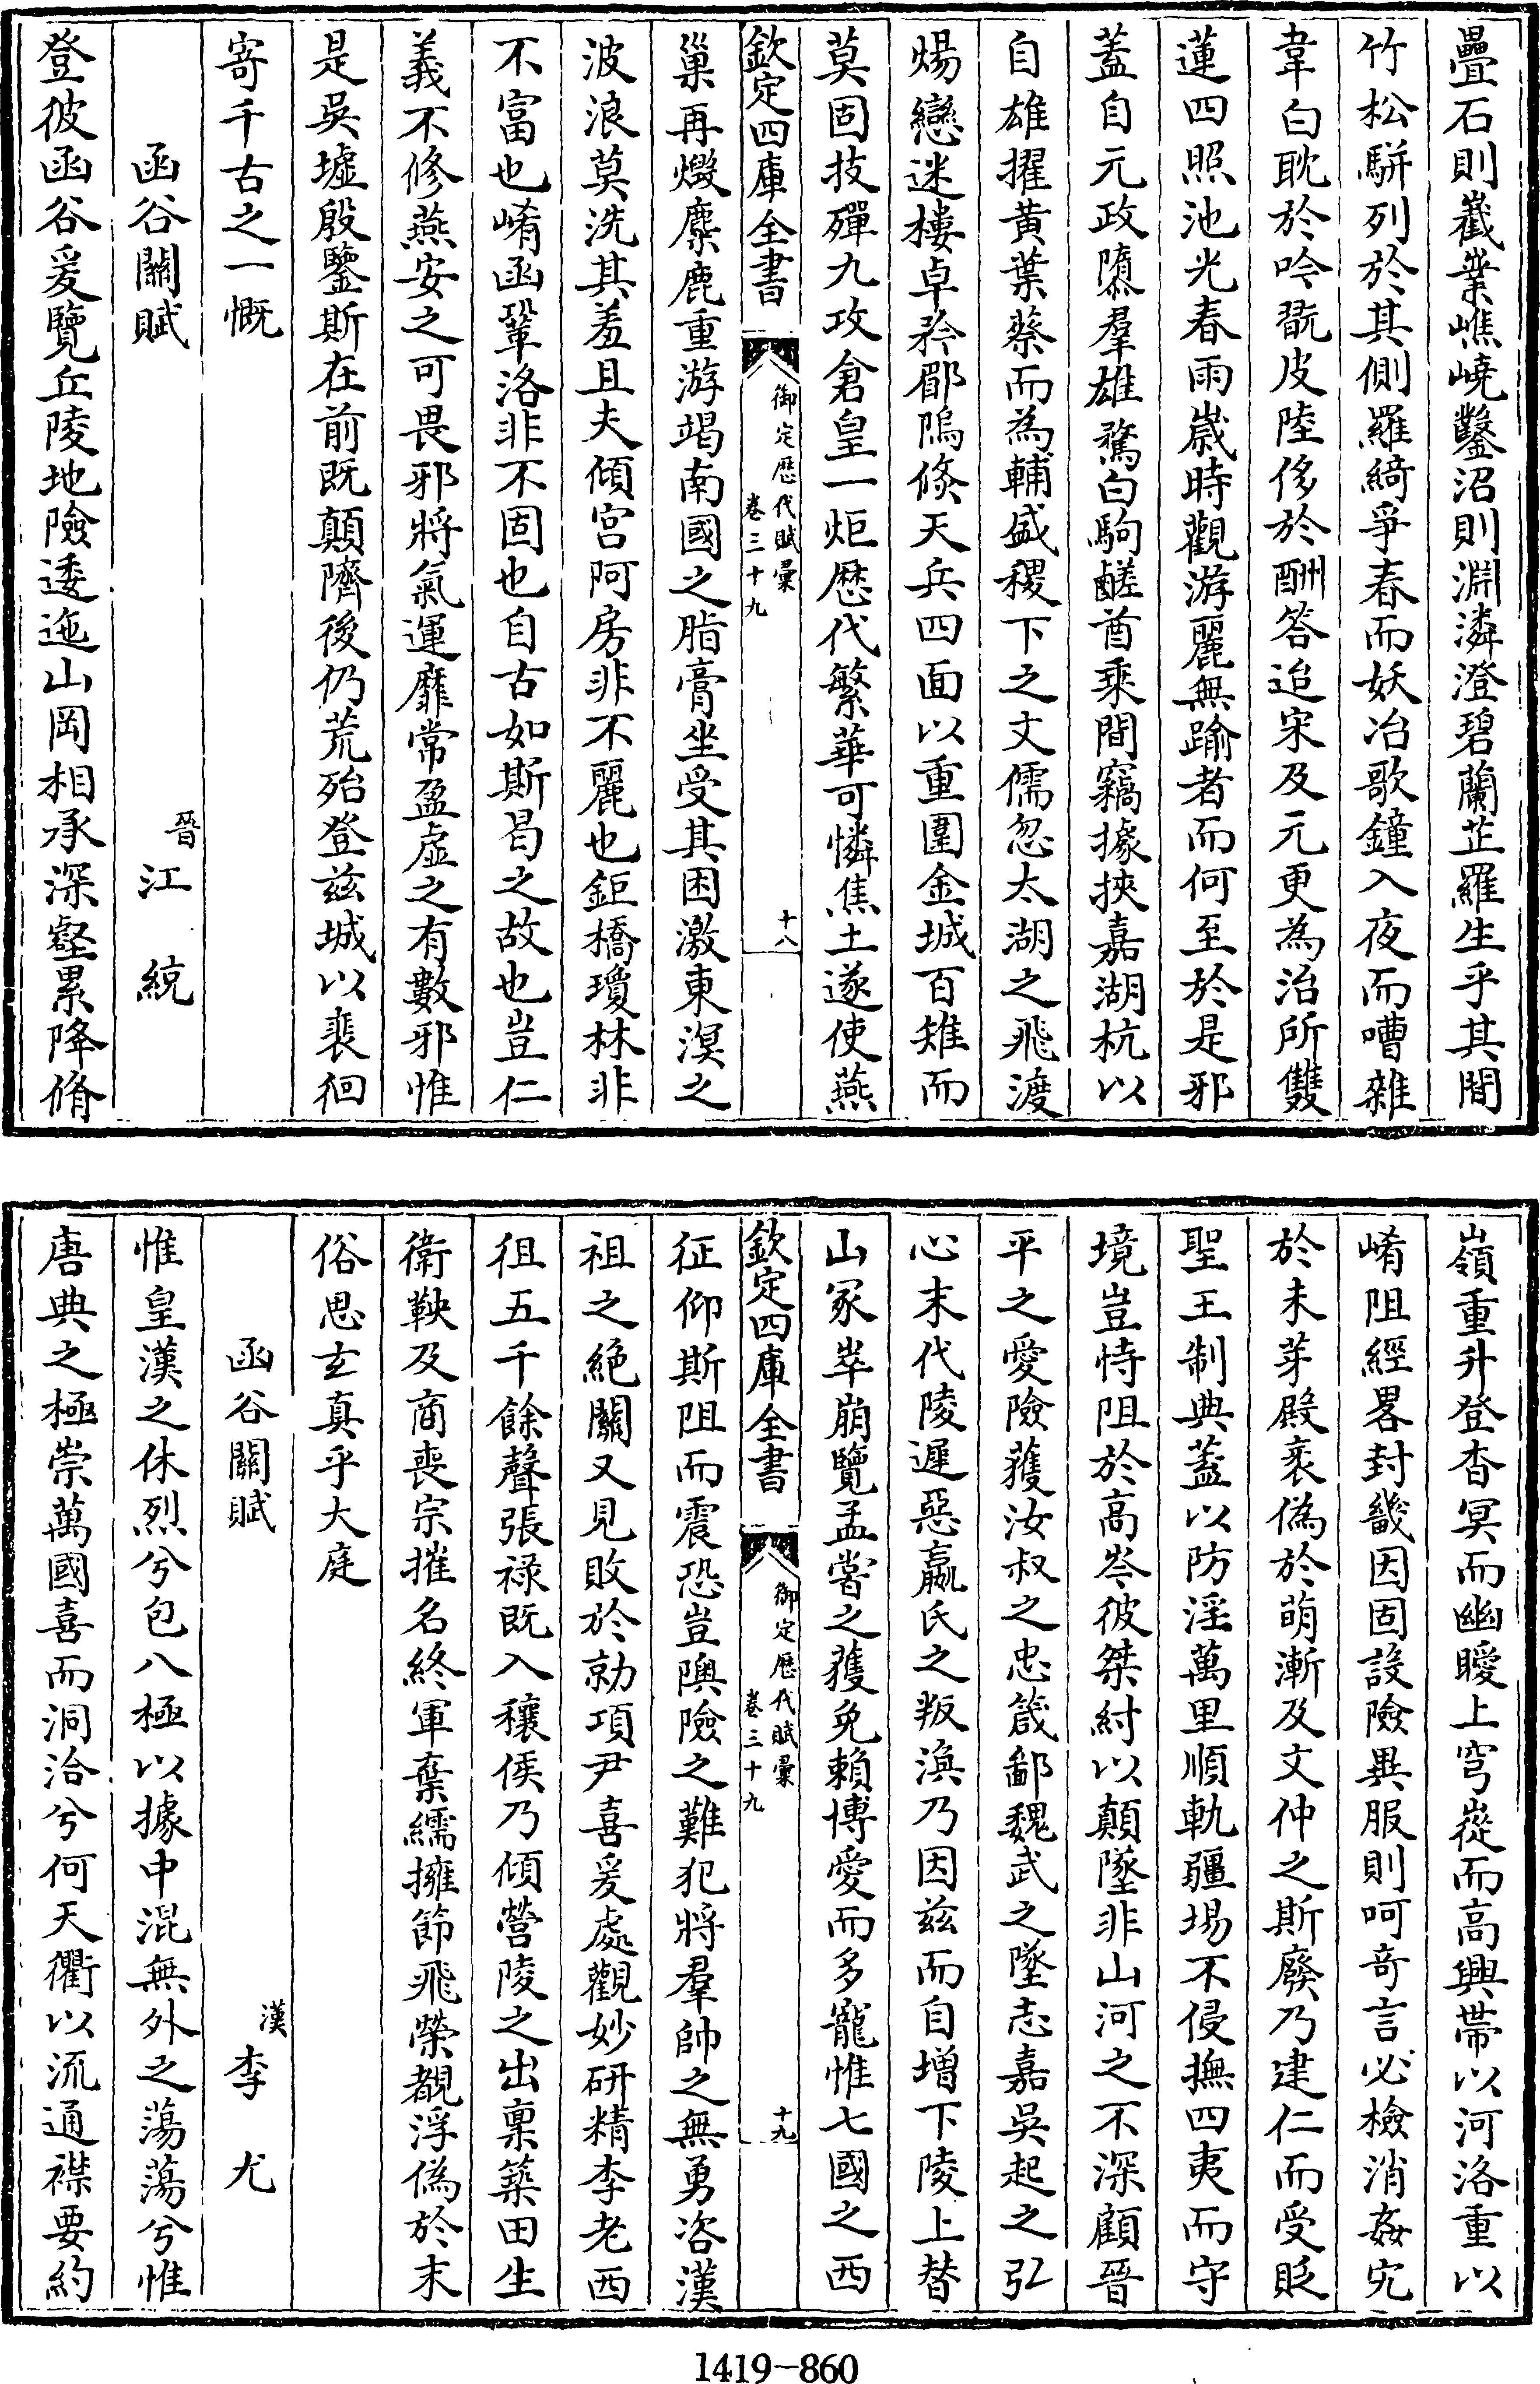 疊石則嶻嶪嶕嶢鑿沼則淵潾澄碧蘭芷羅生乎其間
竹松駢列於其側羅綺爭春而妖冶歌鐘入夜而嘈雜
韋白耽於吟翫皮陸侈於酬答迨宋及元更為治所雙
蓮四照池光春雨嵗時觀游麗無踰者而何至於是邪
蓋自元政隳羣雄騖白駒鹺酋乘間竊據挾嘉湖杭以
自雄擢黃葉蔡而為輔盛稷下之文儒忽太湖之飛渡
煬戀迷樓卓矜郿隖倐天兵四面以重圍金城百雉而
莫固技殫九攻倉皇一炬厯代繁華可憐焦土遂使燕
欽定四庫全書 御定歷代賦彙 卷三十九 十八
巢再燬麋鹿重游竭南國之脂膏坐受其困激東溟之
波浪莫洗其羞且夫傾宫阿房非不麗也鉅橋瓊林非
不富也崤函鞏洛非不固也自古如斯曷之故也豈仁
義不修燕安之可畏邪將氣運靡常盈虛之有數邪惟
是吳墟殷鑒斯在前既顛隮後仍荒殆登兹城以裴徊
寄千古之一慨
函谷關賦 晉江統
登彼函谷爰覽丘陵地險逶迤山岡相承深壑累降脩
嶺重升登杳冥而幽曖上穹嵸而高興帶以河洛重以
崤阻經畧封畿因固設險異服則呵竒言必檢消姦宄
於未芽殿衺偽於萌漸及文仲之斯廢乃建仁而受貶
聖王制典蓋以防淫萬里順軌疆埸不侵撫四夷而守
境豈恃阻於高岑彼桀紂以顛墜非山河之不深顧晉
平之愛險獲汝叔之忠箴鄙魏武之墜志嘉吳起之弘
心末代陵遲惡嬴氏之叛渙乃因兹而自增下陵上替
山冢崒崩覽孟嘗之獲免賴博愛而多寵惟七國之西
欽定四庫全書 御定歷代賦彙 卷三十九 十九
征仰斯阻而震恐豈隩險之難犯將羣帥之無勇咨漢
祖之絶關又見敗於勍項尹喜爰處觀妙研精李老西
徂五千餘聲張禄既入穰侯乃傾營陵之出稟築田生
衛鞅及商喪宗摧名終軍棄繻擁節飛榮覩浮偽於末
俗思玄真乎大庭
函谷關賦 漢李尤
惟皇漢之休烈兮包八極以據中混無外之蕩蕩兮惟
唐典之極崇萬國喜而洞洽兮何天衢以流通襟要約
1419-860